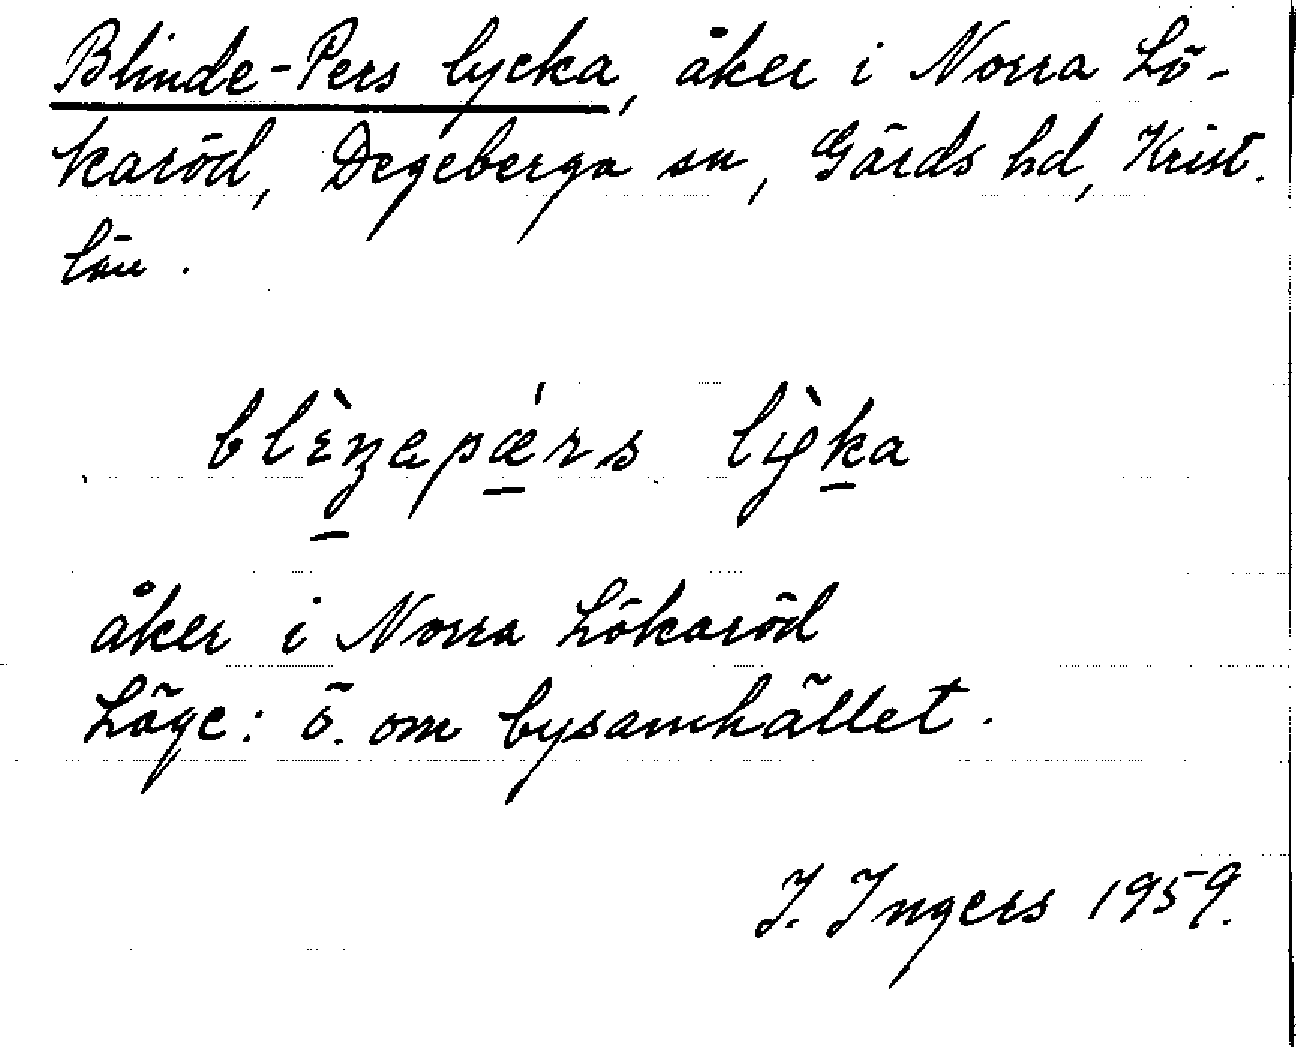 Blinde-Pers lycka, åker i Norra Lö-
karöd, Degeberga sn, Gärds hd, Krist.
län.
blɛ̀ɲepǽrs lỳka
åker i Norra Lökaröd
Läge: ö. om bysamhället.
I. Ingers 1959.